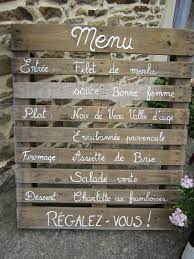 Menu
Entrée : Filet de merlu
sauce Bonne femme
Plat : Noix de Veau Vallée d'auge
Enrubannée provençale
Fromage : Assiette de Brie
Salade verte
Dessert : Charlotte aux framboises
RÉGALEZ-VOUS !